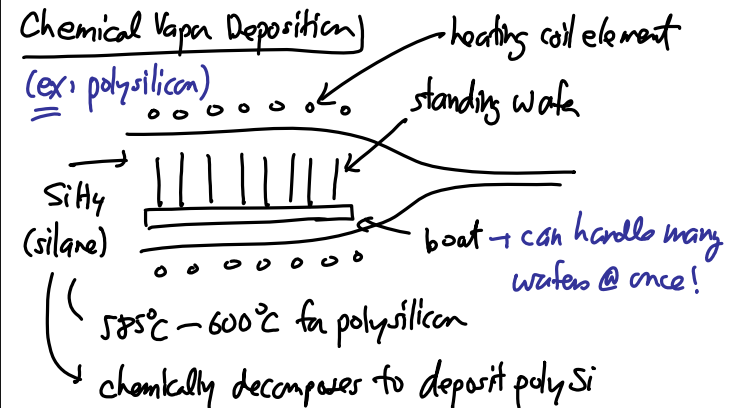 Chemical Vapor Deposition
(ex: polysilicon)
heating coil element
standing wafer
SiH4
(silane)
boat → can handle many
wafers @ once!
585°C - 600°C for polysilicon
chemically decomposes to deposit poly Si